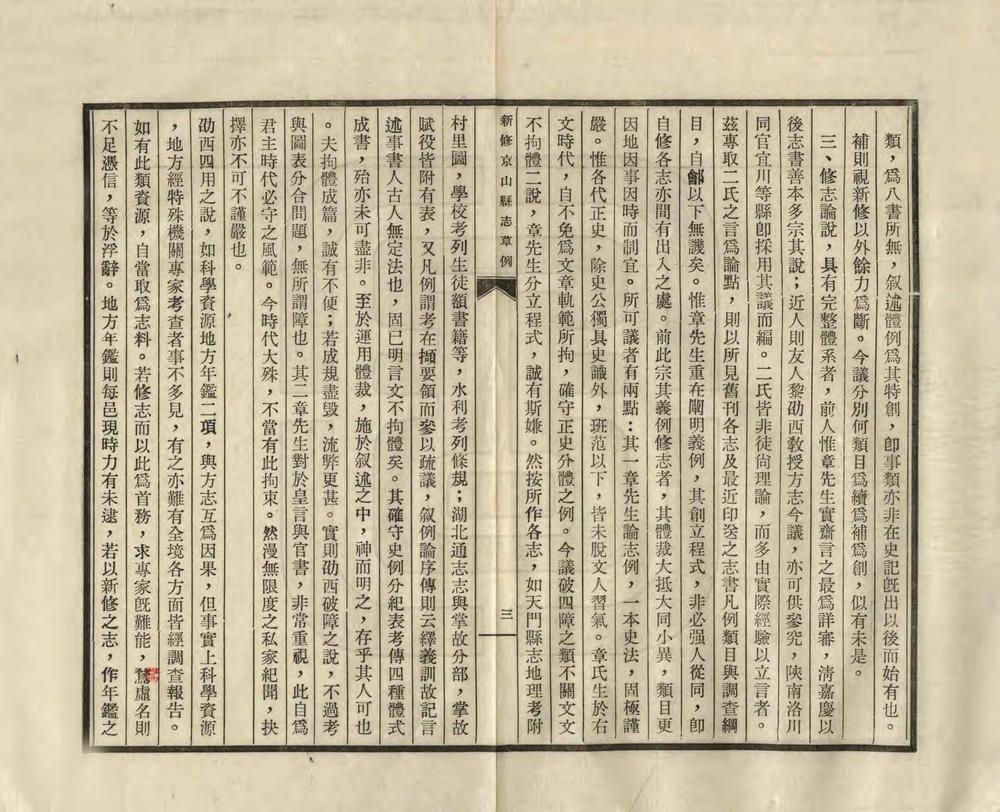 類，爲八書所無，叙述體例爲其特創，卽事類亦非在史記旣出以後而始有也。
補則視新修以外餘力爲斷。今議分別何類目爲續爲補爲創，似有未是。
三、修志論說，具有完整體系者，前人惟章先生實齋言之最爲詳審，淸嘉慶以
後志書善本多宗其說；近人則友人黎劭西敎授方志今議，亦可供參究，陝南洛川
同官宜川等縣卽採用其議而編。二氏皆非徒尙理論，而多由實際經驗以立言者。
茲專取二氏之言爲論點，則以所見舊刊各志及最近印送之志書凡例類目與調查綱
目，自鄶以下無譏矣。惟章先生重在闡明義例，其創立程式，非必强人從同，卽
自修各志亦間有出入之處。前此宗其義例修志者，其體裁大抵大同小異，類目更
因地因事因時而制宜。所可議者有兩點：其一章先生論志例，一本史法，固極謹
嚴。惟各代正史，除史公獨具史識外，班范以下，皆未脫文人習氣。章氏生於右
文時代，自不免爲文章軌範所拘，確守正史分體之例。今議破四障之類不關文文
不拘體二說，章先生分立程式，誠有斯嫌。然按所作各志，如天門縣志地理考附
新修京山縣志草例
三
村里圖，學校考列生徒額書籍等，水利考列條規；湖北通志志與掌故分部，掌故
賦役皆附有表，又凡例謂考在擷要領而參以疏議，叙例論序傳則云繹義訓故記言
述事書人古人無定法也，固已明言文不拘體矣。其確守史例分紀表考傳四種體式
成書，殆亦未可盡非。至於運用體裁，施於叙述之中，神而明之，存乎其人可也
。夫拘體成篇，誠有不便；若成規盡毁，流弊更甚。實則劭西破障之說，不過考
與圖表分合問題，無所謂障也。其二章先生對於皇言與官書，非常重視，此自爲
君主時代必守之風範。今時代大殊，不當有此拘束。然漫無限度之私家紀聞，抉
擇亦不可不謹嚴也。
劭西四用之說，如科學資源地方年鑑二項，與方志互爲因果，但事實上科學資源
，地方經特殊機關專家考查者事不多見，有之亦難有全境各方面皆經調查報告。
如有此類資源，自當取爲志料。若修志而以此爲首務，求專家旣難能，騖虛名則
不足憑信，等於浮辭。地方年鑑則每邑現時力有未逮，若以新修之志，作年鑑之